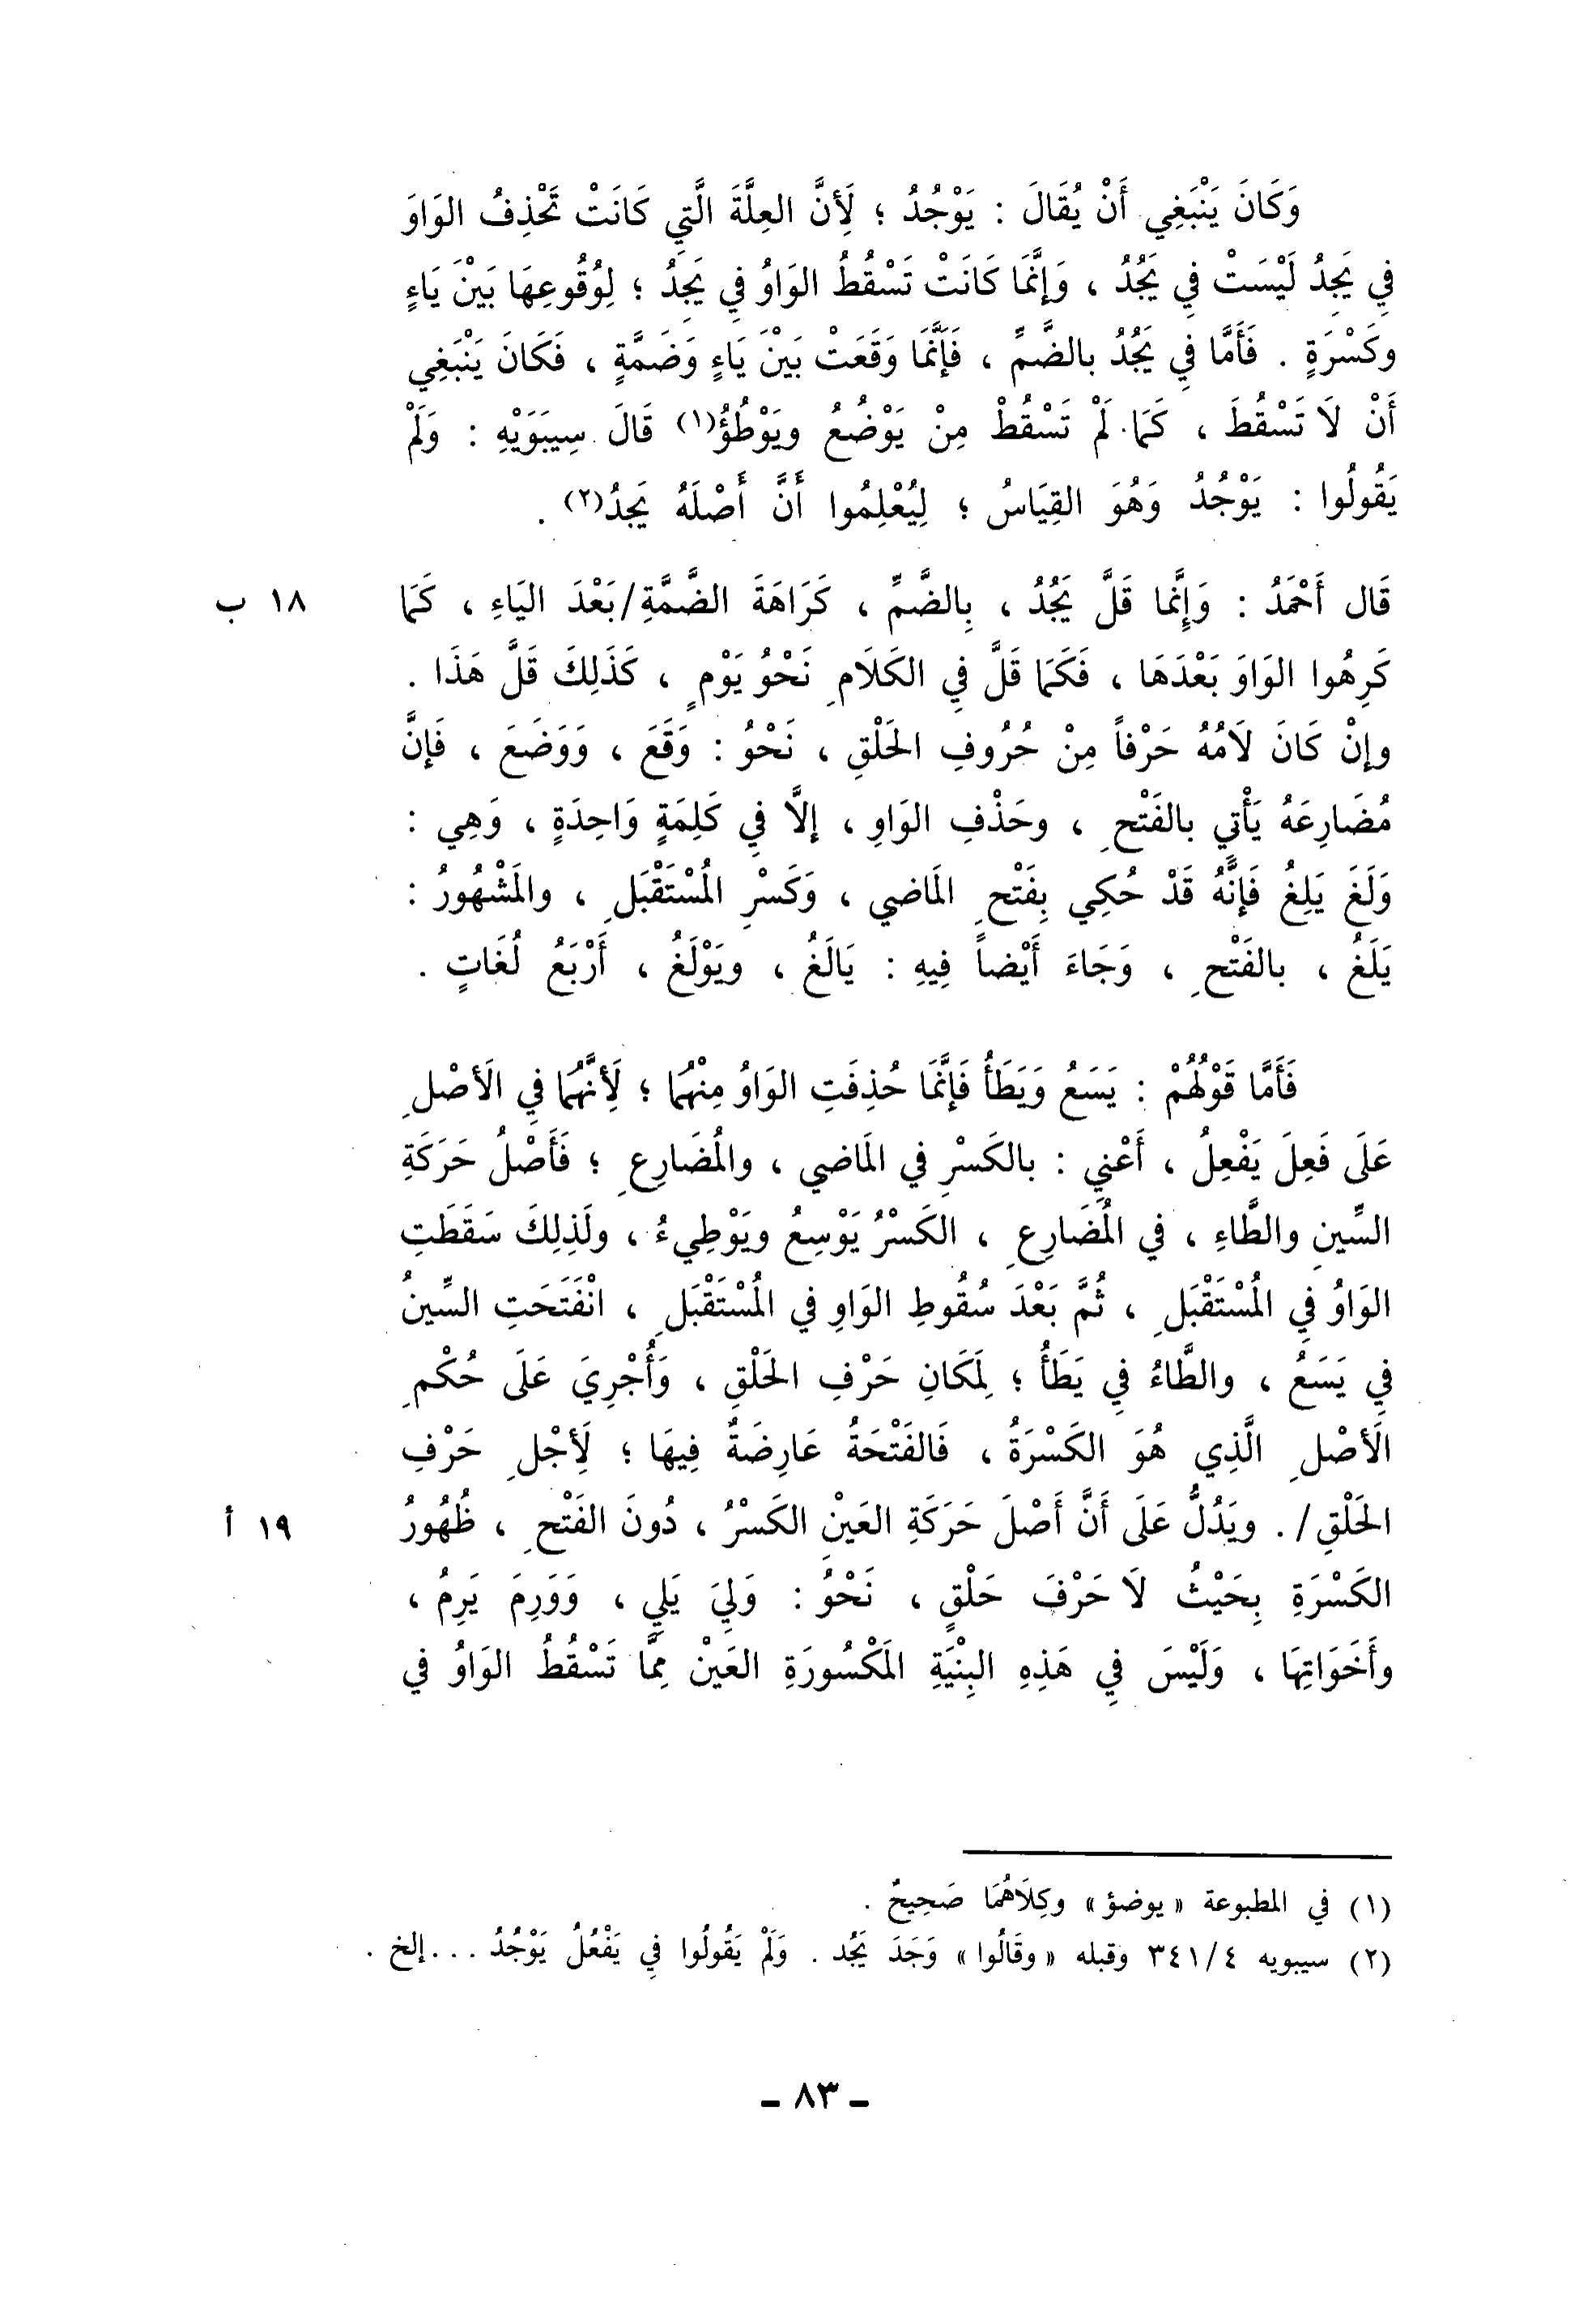 وَكَانَ يَنْبَغِي أَنْ يُقَالَ : يَوْجُدُ ؛ لَأِنَّ العِلَّةَ الَّتِي كَانَتْ تَحْذِفُ الوَاوَ
فِي يَجِدُ لَيْسَتْ فِي يَجُدُ ، وَإِنَّمَا كَانَتْ تَسْقُطُ الوَاوُ فِي يَجِدُ ؛ لِوُقُوعِهَا بَيْنَ يَاءٍ
وكَسْرَةٍ . فَأَمَّا فِي يَجُدُ بالضَّمِّ ، فَإِنَّمَا وَقَعَتْ بَيْنَ يَاءٍ وَضَمَّةٍ ، فَكَانَ يَنْبَغِي
أَنْ لَا تَسْقُطَ ، كَمَا لَمْ تَسْقُطْ مِنْ يَوْضُعُ ويَوْطُؤُ(١) قَالَ سِيبَوَيْهِ : وَلَمْ
يَقُولُوا : يَوْجُدُ وَهُوَ القِيَاسُ ؛ لِيُعْلِمُوا أَنَّ أَصْلَهُ يَجِدُ(٢) .
قَال أَحْمَدُ : وَإِنَّما قَلَّ يَجُدُ ، بِالضَّمِّ ، كَرَاهَةَ الضَّمَّةِ/بَعْدَ اليَاءِ ، كَمَا ١٨ ب
كَرِهُوا الوَاوَ بَعْدَهَا ، فَكَمَا قَلَّ فِي الكَلَامِ نَحْوُ يَوْمٍ ، كَذَلِكَ قَلَّ هَذَا .
وإنْ كَانَ لَامُهُ حَرْفاً مِنْ حُرُوفِ الحَلْقِ ، نَحْوُ : وَقَعَ ، وَوَضَعَ ، فَإِنَّ
مُضَارِعَهُ يَأْتِي بالفَتْحِ ، وحَذْفِ الوَاوِ ، إلَّا فِي كَلِمَةٍ وَاحِدَةٍ ، وَهِي :
وَلَغَ يَلِغُ فَإِنَّهُ قَدْ حُكِي بِفَتْحِ المَاضي ، وَكَسْرِ المُسْتَقْبَلِ ، والمَشْهُورُ :
يَلَغُ ، بالفَتْحِ ، وَجَاءَ أَيْضاً فِيهِ : يَالَغُ ، ويَوْلَغُ ، أَرْبَعُ لُغَاتٍ .
فَأَمَّا قَوْلُهُمْ : يَسَعُ وَيَطَأُ فَإِنَّمَا حُذِفَتِ الوَاوُ مِنْهُمَا ؛ لَأِنَّهُمَا فِي الَأصْلِ
عَلَى فَعِلَ يَفْعِلُ ، أَعْنِي : بالكَسْرِ في المَاضي ، والمُضَارِعِ ؛ فَأَصْلُ حَرَكَةِ
السِّينِ والطَّاءِ ، في المُضَارِعِ ، الكَسْرُ يَوْسِعُ ويَوْطِيءُ ، ولَذِلِكَ سَقَطَتِ
الوَاوُ فِي المُسْتَقْبَلِ ، ثُمَّ بَعْدَ سُقُوطِ الوَاوِ في المُسْتَقْبَلِ ، انْفَتَحَتِ السِّينُ
فِي يَسَعُ ، والطَّاءُ فِي يَطَأُ ؛ لِمَكَانِ حَرْفِ الحَلْقِ ، وَأُجْرِيَ عَلَى حُكْمِ
الَأصْلِ الَّذِي هُوَ الكَسْرَةُ ، فَالفَتْحَةُ عَارِضَةٌ فِيهَا ؛ لَأِجْلِ حَرْفِ
الحَلْقِ/ . ويَدُلُّ عَلَى أَنَّ أَصْلَ حَرَكَةِ العَيْنِ الكَسْرُ ، دُونَ الفَتْحِ ، ظُهُورُ ١٩ أ
الكَسْرَةِ بِحَيْثُ لَا حَرْفَ حَلْقٍ ، نَحْوُ : وَلِيَ يَلِي ، وَوَرِمَ يَرِمُ ،
وأَخَوَاتِهَا ، وَلَيْسَ فِي هَذِهِ البِنْيَةِ المَكْسُورَةِ العَيْنْ مِمَّا تَسْقُطُ الوَاوُ في
(١) في المطبوعة « يوضؤ » وكِلَاهُمَا صَحِيحٌ .
(٢) سيبويه ٣٤١/٤ وقبله « وقَالُوا » وَجَدَ يَجُد . وَلَمْ يَقُولُوا فِي يَفْعُلُ يَوْجُدُ ...إلخ .
ـ ٨٣ ـ